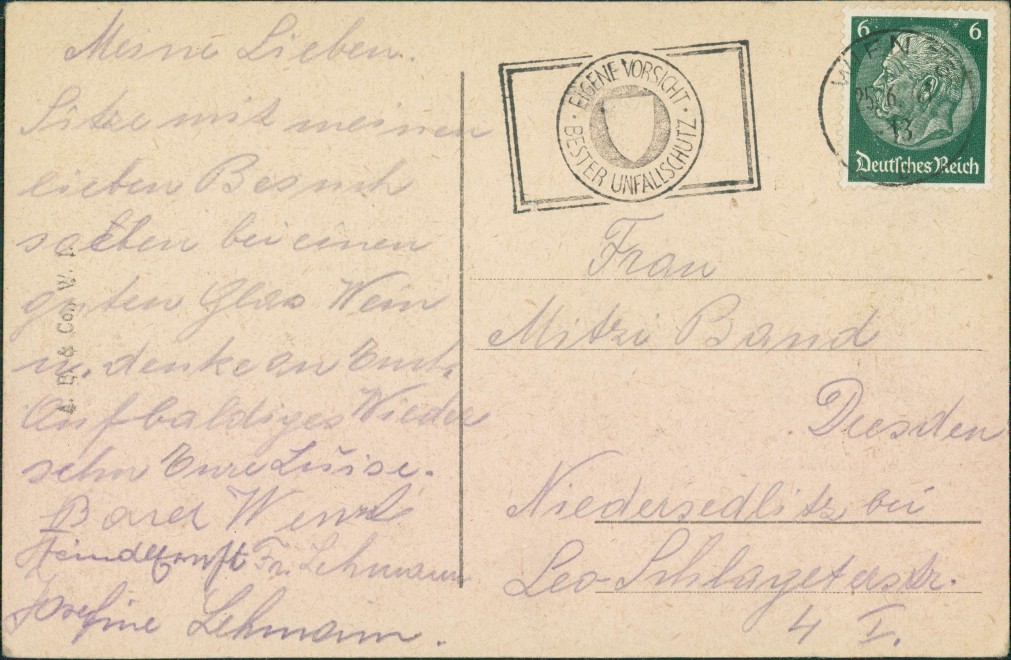 Meine Lieben.
Sitze mit meinen
lieben Besuch
soeben bei einen
guten Glas Wein
u. denke an Euch.
Auf baldiges Wieder
sehn Eure Luise.
Wenzl
Fr. Lehmann
Josefine Lehmann.
& Co., W.
EIGENE VORSICHT
BESTER UNFALLSCHUTZ
WIEN
25. 6.
13
6 6
Deutsches Reich
Frau
Mitzi Band
Dresden
Niedersedlitz bei
Leo-Schlageterstr.
4 I.